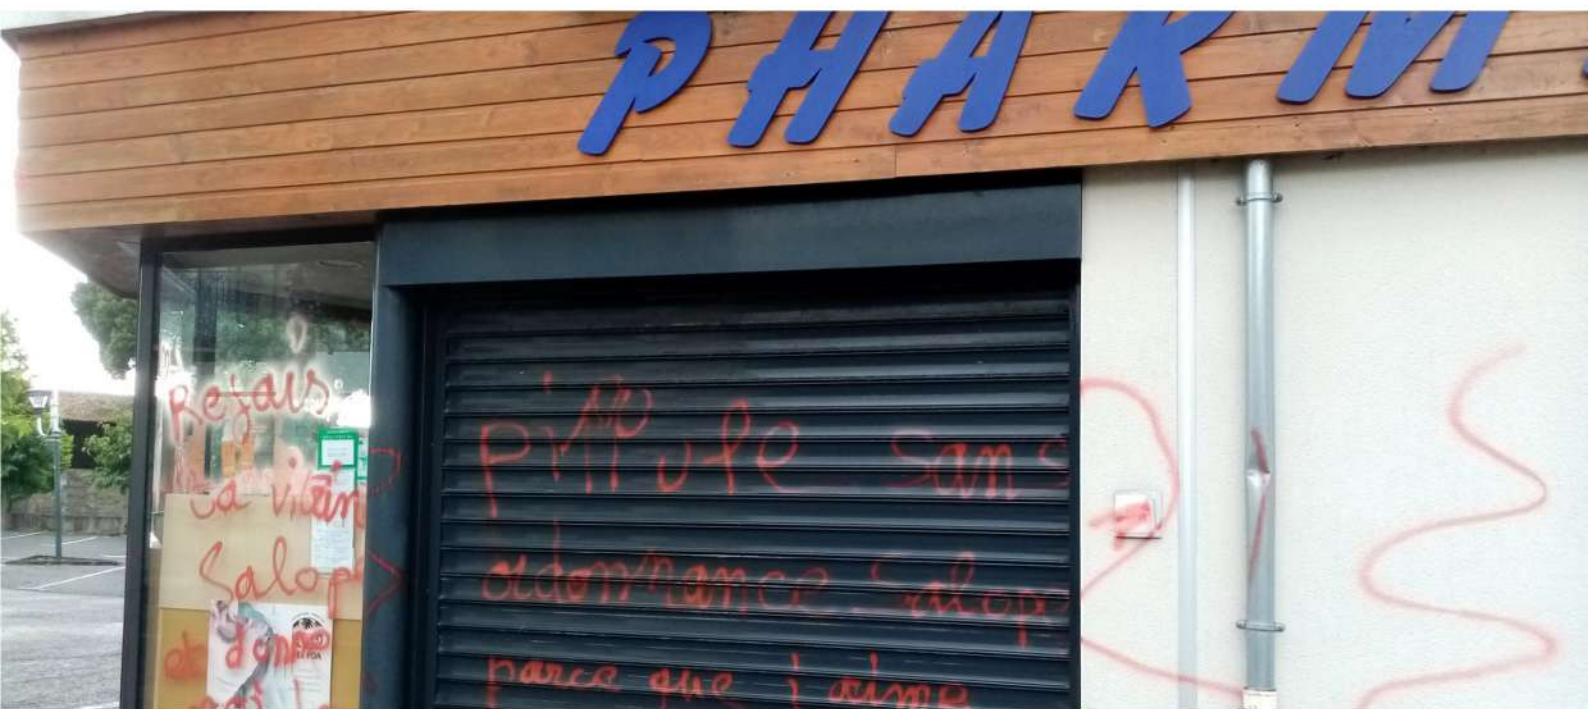 PHARM
Refais
sa vitrin
Salop
et donn
moi la
pillule sans
ordonnance Salop
parce que j aime